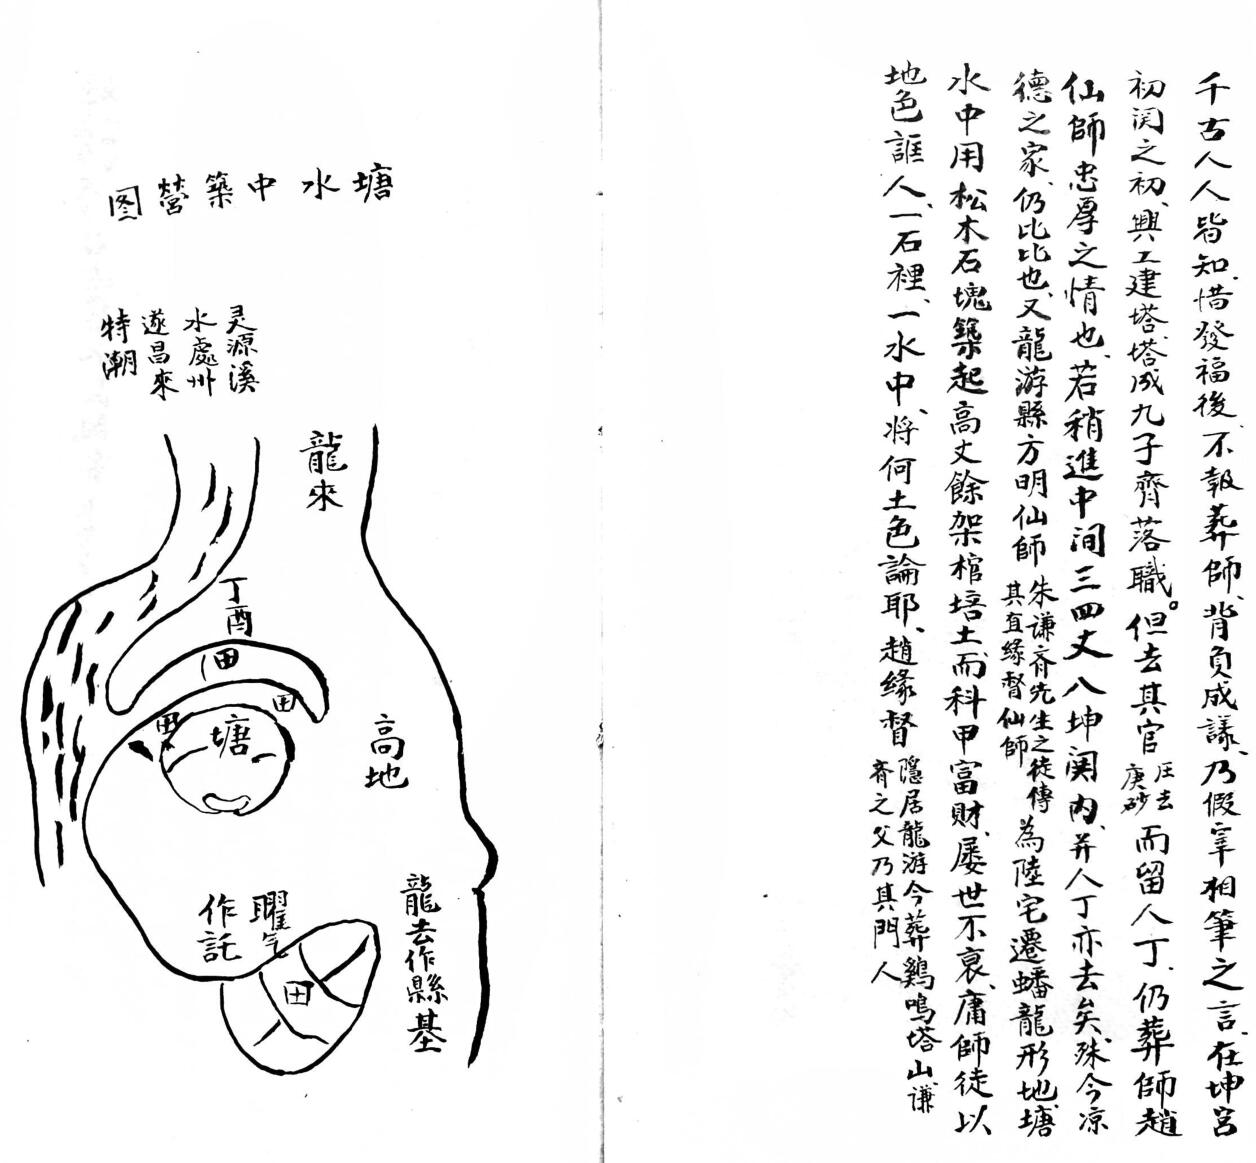 千古人人皆知、惜發福後、不報葬師、背負成議、乃假宰相筆之言、在坤宮
初関之初、興工建塔、塔成九子齊落職。但去其官
庄去
庚砂
而留人丁、仍葬師趙
仙師忠厚之情也、若稍進中间三四丈八坤関内、并人丁亦去矣、殊今凉
德之家、仍比比也、又龍游縣方明仙師
朱谦齐先生之徒傳
其直缘督仙師
為陸宅遷蟠龍形地、塘
水中用松木石塊築起高丈餘架棺培土、而科甲富財、屡世不衰、庸師徒以
地色誆人、一石裡、一水中、将何土色論耶、趙缘督
隱居龍游今葬鷄鳴塔山、谦
齐之父乃其門人
塘水中築營图
灵源溪
水處州
遂昌來
特潮
龍來
丁酉
田
田
田
塘
高地
龍去作縣基
曜气
作託
田